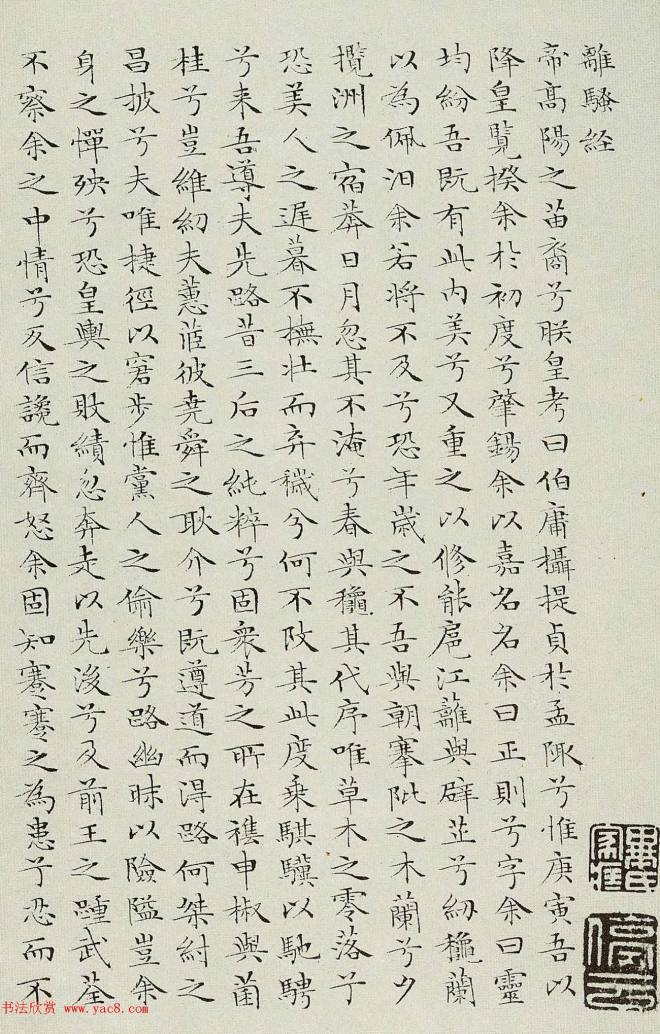 離騷経
帝髙陽之苗裔兮朕皇考曰伯庸攝提貞於孟陬兮惟庚寅吾以
降皇覽揆余於初度兮肇錫余以嘉名名余曰正則兮字余曰靈
均紛吾既有此内美兮又重之以修能扈江蘺與辟芷兮紉穐蘭
以為佩汨余若將不及兮恐年歲之不吾與朝搴阰之木蘭兮夕
攬洲之宿莽日月忽其不淹兮春與穐其代序唯草木之零落兮
恐美人之遲暮不撫壯而弃穢兮何不改其此度乗騏驥以馳騁
兮来吾導夫先路昔三后之純粹兮固衆芳之所在襍申椒與菌
桂兮豈維紉夫蕙茝彼堯舜之耿介兮既遵道而得路何桀紂之
昌披兮夫唯捷徑以窘步惟黨人之偷樂兮路幽昧以險隘豈余
身之憚殃兮恐皇輿之敗績忽奔走以先後兮及前王之踵武荃
不察余之中情兮反信讒而齊怒余固知謇謇之為患兮忍而不
书法欣赏 www.yac8.com